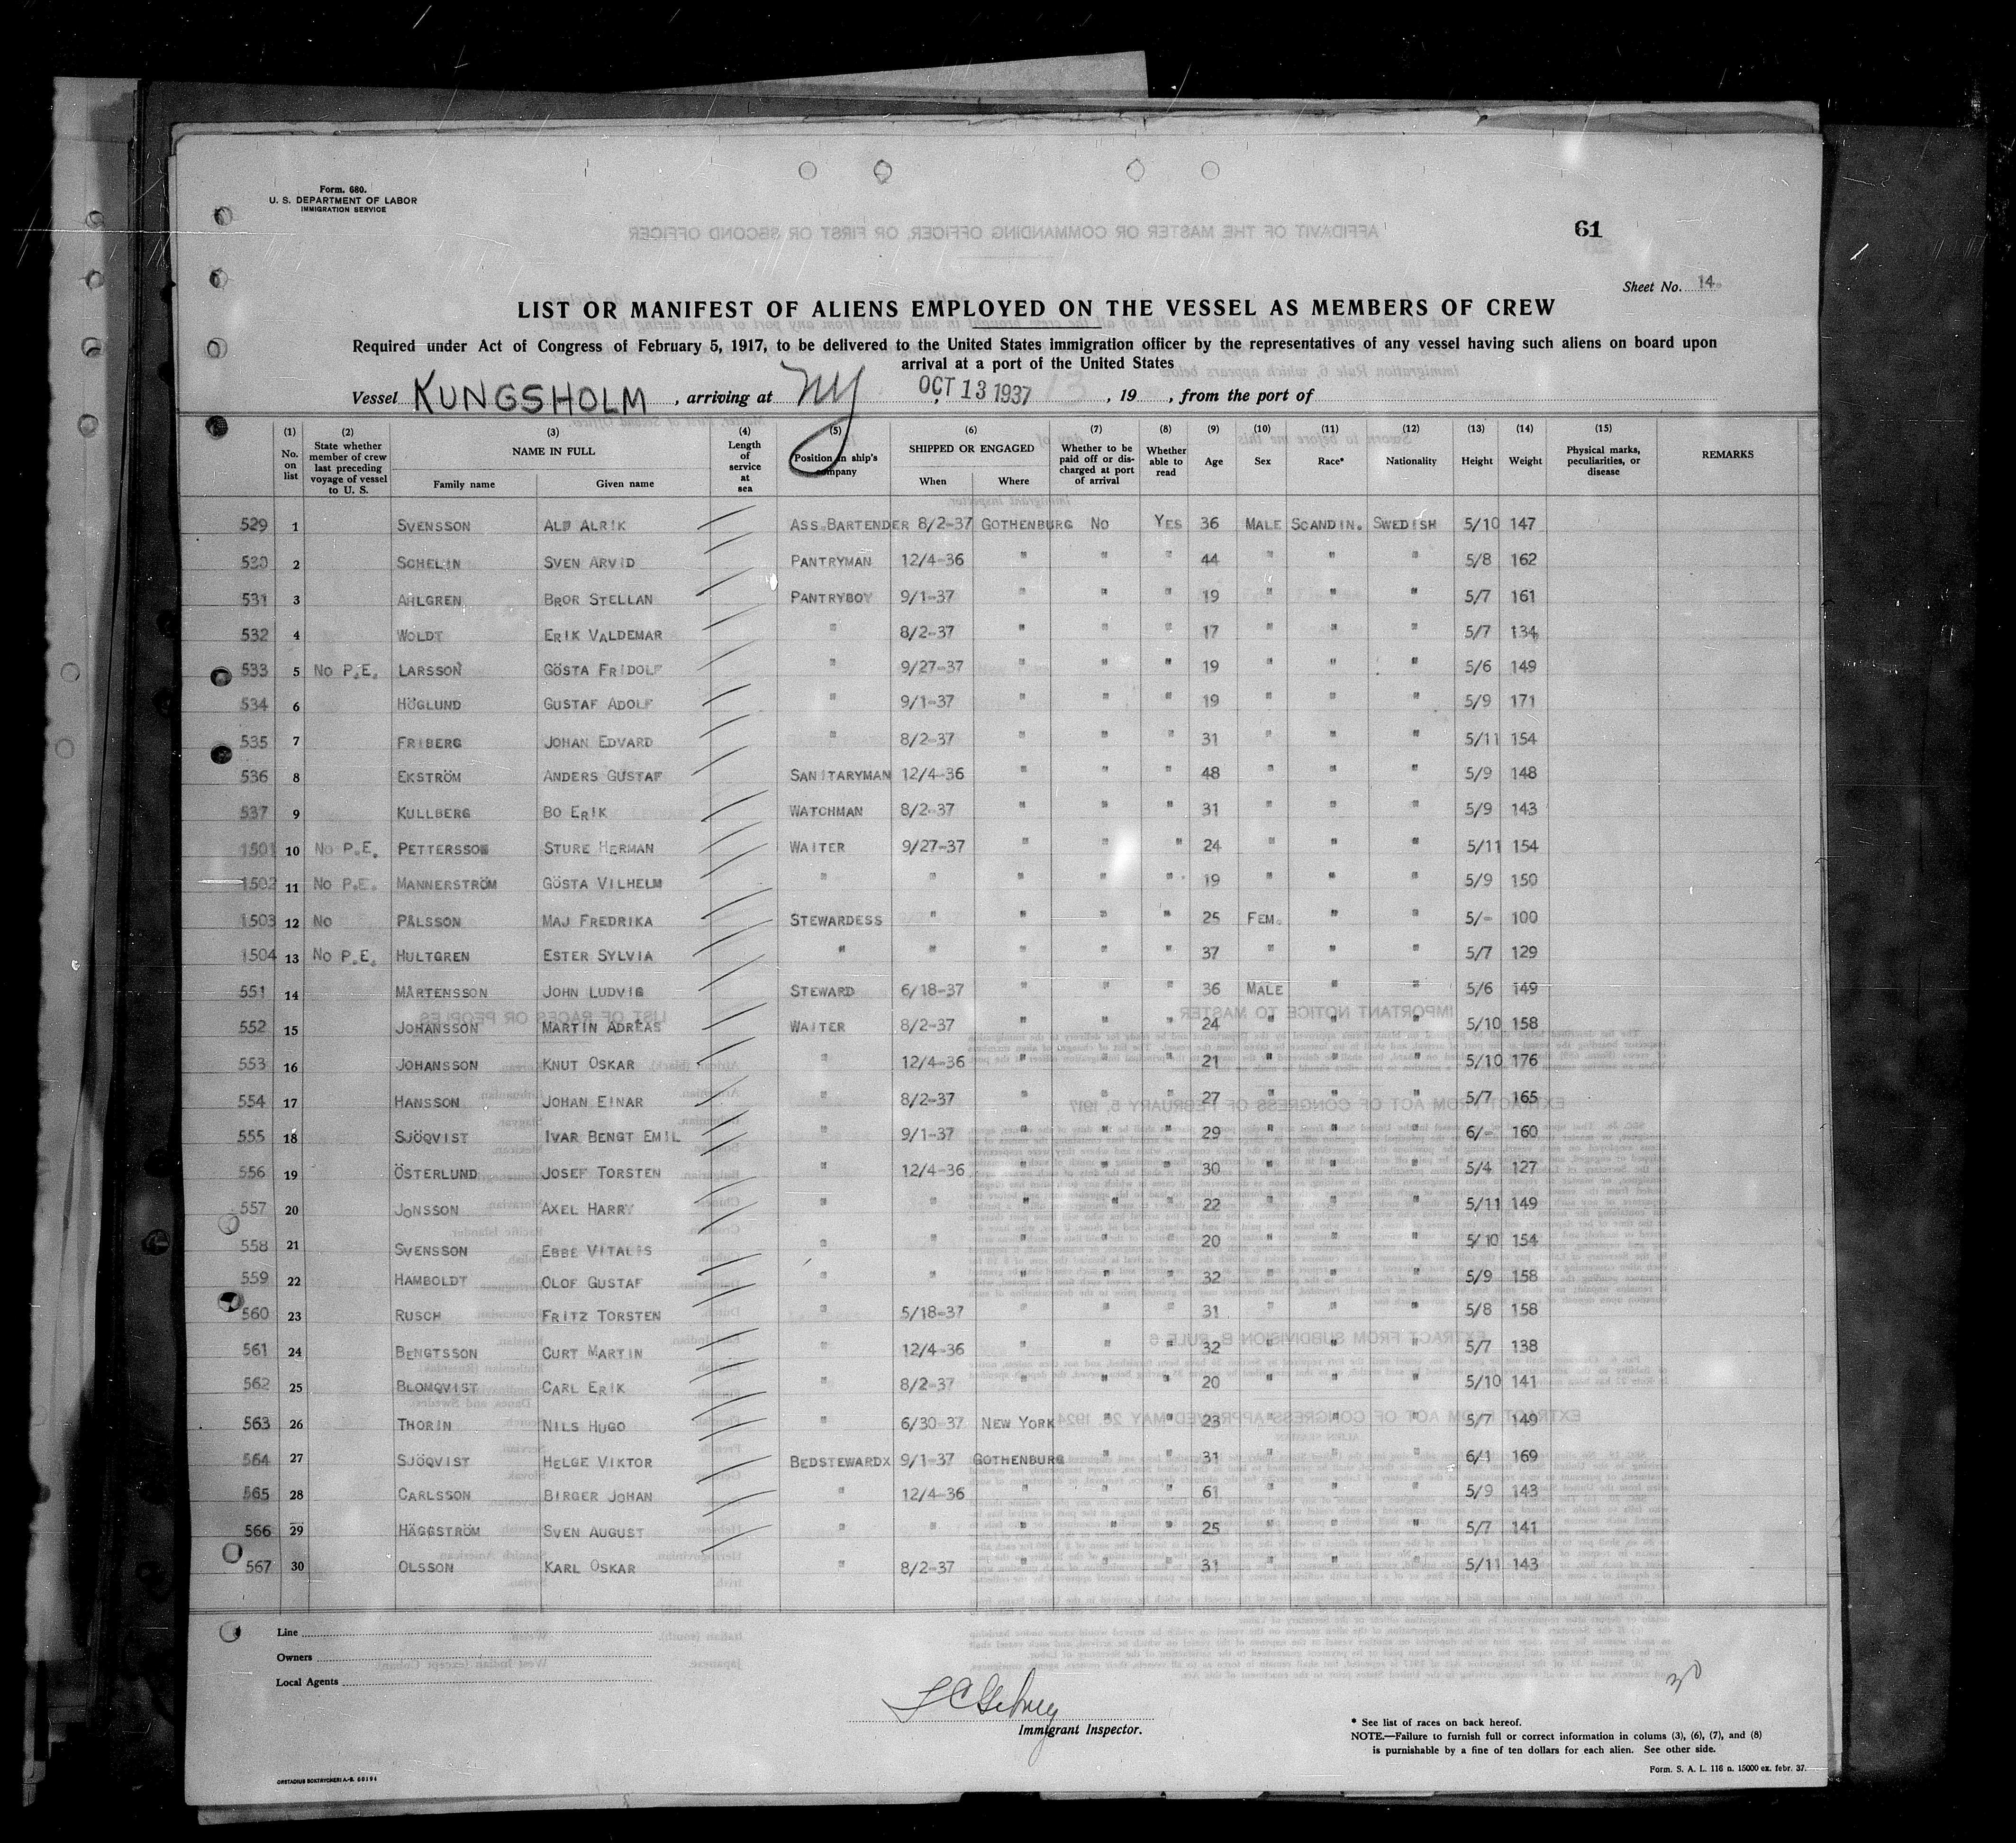 Form. 680.
U. S. DEPARTMENT OF LABOR
IMMIGRATION SERVICE
AFFIDAVIT OF THE MASTER OR COMMANDING OFFICER, OR FIRST OR SECOND OFFICER
61
Sheet No. 14.
LIST OR MANIFEST OF ALIENS EMPLOYED ON THE VESSEL AS MEMBERS OF CREW
Required under Act of Congress of February 5, 1917, to be delivered to the United States immigration officer by the representatives of any vessel having such aliens on board upon
arrival at a port of the United States
Vessel KUNGSHOLM, arriving at NY, OCT 13 1937, 19 , from the port of
(1) No. on list (2) State whether member of crew last preceding voyage of vessel to U. S. (3) NAME IN FULL Family name Given name (4) Length of service at sea (5) Position in ship's company (6) SHIPPED OR ENGAGED When Where (7) Whether to be paid off or discharged at port of arrival (8) Whether able to read (9) Age (10) Sex (11) Race* (12) Nationality (13) Height (14) Weight (15) Physical marks, peculiarities, or disease REMARKS
529 1 SVENSSON ALF ALRIK ASS.BARTENDER 8/2-37 GOTHENBURG NO YES 36 MALE SCANDIN. SWEDISH 5/10 147
530 2 SCHELIN SVEN ARVID PANTRYMAN 12/4-36 " " " 44 " " " 5/8 162
531 3 AHLGREN BROR STELLAN PANTRYBOY 9/1-37 " " " 19 " " " 5/7 161
532 4 WOLDT ERIK VALDEMAR " 8/2-37 " " " 17 " " " 5/7 134
533 5 NO P.E. LARSSON GÖSTA FRIDOLF " 9/27-37 " " " 19 " " " 5/6 149
534 6 HÖGLUND GUSTAF ADOLF " 9/1-37 " " " 19 " " " 5/9 171
535 7 FRIBERG JOHAN EDVARD " 8/2-37 " " " 31 " " " 5/11 154
536 8 EKSTRÖM ANDERS GUSTAF SANITARYMAN 12/4-36 " " " 48 " " " 5/9 148
537 9 KULLBERG BO ERIK WATCHMAN 8/2-37 " " " 31 " " " 5/9 143
1501 10 NO P.E. PETTERSSON STURE HERMAN WAITER 9/27-37 " " " 24 " " " 5/11 154
1502 11 NO P.E. MANNERSTRÖM GÖSTA VILHELM " " " " " 19 " " " 5/9 150
1503 12 NO PÅLSSON MAJ FREDRIKA STEWARDESS " " " " 25 FEM. " " 5/- 100
1504 13 NO P.E. HULTGREN ESTER SYLVIA " " " " " 37 " " " 5/7 129
551 14 MÅRTENSSON JOHN LUDVIG STEWARD 6/18-37 " " " 36 MALE " " 5/6 149
552 15 JOHANSSON MARTIN ADREAS WAITER 8/2-37 " " " 24 " " " 5/10 158
553 16 JOHANSSON KNUT OSKAR " 12/4-36 " " " 21 " " " 5/10 176
554 17 HANSSON JOHAN EINAR " 8/2-37 " " " 27 " " " 5/7 165
555 18 SJÖQVIST IVAR BENGT EMIL " 9/1-37 " " " 29 " " " 6/- 160
556 19 ÖSTERLUND JOSEF TORSTEN " 12/4-36 " " " 30 " " " 5/4 127
557 20 JONSSON AXEL HARRY " " " " " 22 " " " 5/11 149
558 21 SVENSSON EBBE VITALIS " " " " " 20 " " " 5/10 154
559 22 HAMBOLDT OLOF GUSTAF " " " " " 32 " " " 5/9 158
560 23 RUSCH FRITZ TORSTEN " 5/18-37 " " " 31 " " " 5/8 158
561 24 BENGTSSON CURT MARTIN " 12/4-36 " " " 32 " " " 5/7 138
562 25 BLOMQVIST CARL ERIK " 8/2-37 " " " 20 " " " 5/10 141
563 26 THORIN NILS HUGO " 6/30-37 NEW YORK " " 23 " " " 5/7 149
564 27 SJÖQVIST HELGE VIKTOR BEDSTEWARDX 9/1-37 GOTHENBURG " " 31 " " " 6/1 169
565 28 CARLSSON BIRGER JOHAN " 12/4-36 " " " 61 " " " 5/9 143
566 29 HÄGGSTRÖM SVEN AUGUST " " " " " 25 " " " 5/7 141
567 30 OLSSON KARL OSKAR " 8/2-37 " " " 31 " " " 5/11 143
Line
Owners
Local Agents
30
Immigrant Inspector.
* See list of races on back hereof.
NOTE.—Failure to furnish full or correct information in colums (3), (6), (7), and (8)
is punishable by a fine of ten dollars for each alien. See other side.
Form. S. A. L. 116 n. 15000 ex. febr. 37.
ORSTADIUS BOKTRYCKERI A.-B. 60194